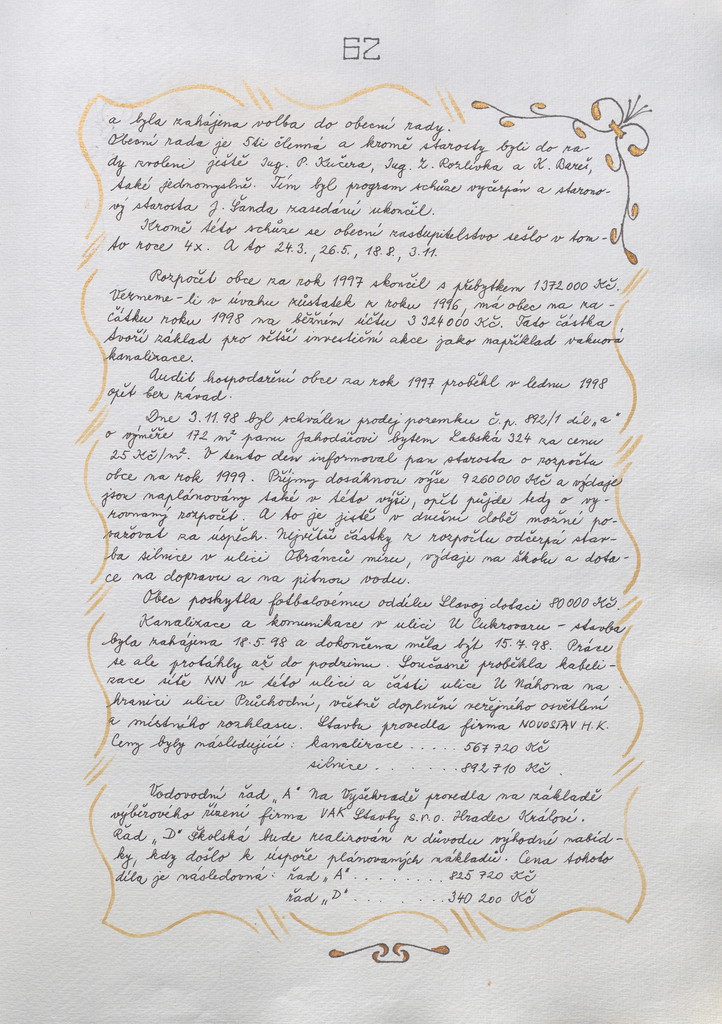 62
a byla zahájena volba do obecní rady.
Obecní rada je 5ti členná a kromě starosty byli do ra-
dy zvoleni ještě Ing. P. Kučera, Ing. Z. Rozlívka a K. Bareš,
také jednomyslně. Tím byl program schůze vyčerpán a starono-
vý starosta J. Šanda zasedání ukončil.
Kromě této schůze se obecní zastupitelstvo sešlo v tom-
to roce 4x. A to 24.3., 26.5., 18.8., 3.11.
Rozpočet obce za rok 1997 skončil s přebytkem 1 372 000 Kč.
Vezmeme-li v úvahu zůstatek z roku 1996, má obec na za-
čátku roku 1998 na běžném účtu 3 324 000 Kč. Tato částka
tvoří základ pro větší investiční akce jako například vakuová
kanalizace.
Audit hospodaření obce za rok 1997 proběhl v lednu 1998
opět bez závad.
Dne 3.11.98 byl schválen prodej pozemku č.p. 892/1 díl „a"
o výměře 172 m² panu Jahodářovi bytem Labská 324 za cenu
25 Kč/m². V tento den informoval pan starosta o rozpočtu
obce na rok 1999. Příjmy dosáhnou výše 9 260 000 Kč a výdaje
jsou naplánovány také v této výši, opět půjde tedy o vy-
rovnaný rozpočet. A to je jistě v dnešní době možné po-
važovat za úspěch. Největší částky z rozpočtu odčerpá stav-
ba silnice v ulici Obránců míru, výdaje na školu a dota-
ce na dopravu a na pitnou vodu.
Obec poskytla fotbalovému oddílu Slavoj dotaci 80 000 Kč.
Kanalizace a komunikace v ulici U Cukrovaru – stavba
byla zahájena 18.5.98 a dokončena měla být 15.7.98. Práce
se ale protáhly až do podzimu. Současně proběhla kabeli-
zace sítě NN v této ulici a části ulice U Náhona na
hranici ulice Průchodní, včetně doplnění veřejného osvětlení
a místního rozhlasu. Stavbu provedla firma NOVOSTAV H.K.
Ceny byly následující: kanalizace ..... 567 720 Kč
silnice ........ 892 710 Kč
Vodovodní řad „A" Na Vyšehradě provedla na základě
výběrového řízení firma VAK Stavby s.r.o. Hradec Králové.
Řad „D" Školská bude realizován z důvodu výhodné nabíd-
ky, kdy došlo k úspoře plánovaných nákladů. Cena tohoto
díla je následovná: řad „A" ......... 825 720 Kč
řad „D" ......... 340 200 Kč